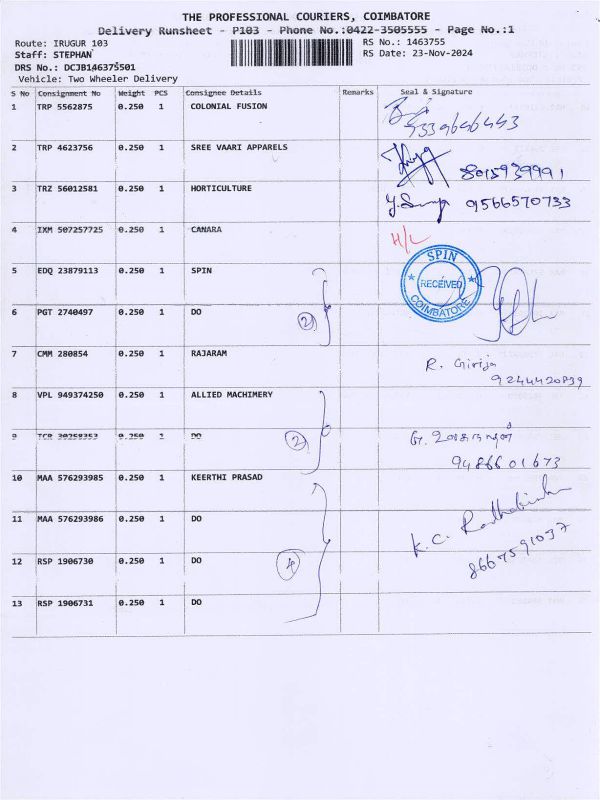 THE PROFESSIONAL COURIERS, COIMBATORE
Delivery Runsheet - P103 - Phone No.:0422-3505555 - Page No.:1
Route: IRUGUR 103
RS No.: 1463755
Staff: STEPHAN
RS Date: 23-Nov-2024
DRS No.: DCJB14637S501
Vehicle: Two Wheeler Delivery
S No Consignment No Weight PCS Consignee Details Remarks Seal & Signature
1 TRP 5562875 0.250 1 COLONIAL FUSION
2 TRP 4623756 0.250 1 SREE VAARI APPARELS
8015939991
3 TRZ 56012581 0.250 1 HORTICULTURE
9566570733
4 IXM 507257725 0.250 1 CANARA H/L
5 EDQ 23879113 0.250 1 SPIN
SPIN RECEIVED COIMBATORE
6 PGT 2740497 0.250 1 DO 2
7 CMM 280854 0.250 1 RAJARAM R. Girija
9244420839
8 VPL 949374250 0.250 1 ALLIED MACHIMERY
9 TCR 30258353 0.250 1 DO 2
9486601673
10 MAA 576293985 0.250 1 KEERTHI PRASAD
11 MAA 576293986 0.250 1 DO K.C.
12 RSP 1906730 0.250 1 DO 4 8667591037
13 RSP 1906731 0.250 1 DO